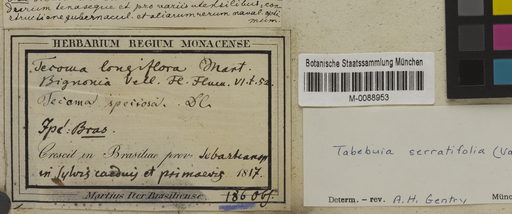 durum tenaxque et pro variis utensilibus, con
structione gubernacul. et aliarum rerum naval. opti
mum.
HERBARIUM REGIUM MONACENSE
Tecoma longiflora Mart.
Bignonia Vell. Fl. Flum. VI. t. 52.
Tecoma speciosa. DC.
Ipé: Bras.
Crescit in Brasiliae prov. Sebastianop.
in sylvis caeduis et primaevis 1817.
Martius Iter Brasiliense 186 Obs.
Botanische Staatssammlung München
M-0088953
Tabebuia serratifolia (Va
Determ. – rev. A. H. Gentry Münc